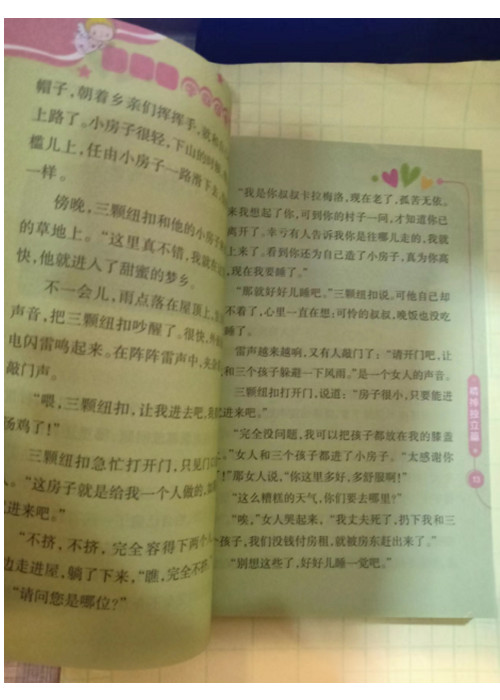 帽子，朝着乡亲们挥挥手，就
上路了。小房子很轻，下山的时
槛儿上，任由小房子一路滑下去
一样。
傍晚，三颗纽扣和他的小房子
的草地上。“这里真不错，我就
快，他就进入了甜蜜的梦乡。
不一会儿，雨点落在屋顶上，
声音，把三颗纽扣吵醒了。很快，
电闪雷鸣起来。在阵阵雷声中，夹
敲门声。
“喂，三颗纽扣，让我进去吧，
汤鸡了！”
三颗纽扣急忙打开门，只见门
“这房子就是给我一个人做的，
进来吧。”
“不挤，不挤，完全容得下两个
边走进屋，躺了下来，“瞧，完全不挤
“请问您是哪位？”
“我是你叔叔卡拉梅洛，现在老了，孤苦无依。
来我想起了你，可到你的村子一问，才知道你已
离开了。幸亏有人告诉我你是往哪儿走的，我就
上来了。看到你还为自己造了小房子，真为你高
现在我要睡了。”
“那就好好儿睡吧。”三颗纽扣说。可他自己却
不着了，心里一直在想：可怜的叔叔，晚饭也没吃
睡了。
雷声越来越响，又有人敲门了：“请开门吧，让
和三个孩子躲避一下风雨。”是一个女人的声音。
三颗纽扣打开门，说道：“房子很小，只要能进
进来吧。”
“完全没问题，我可以把孩子都放在我的膝盖
。”女人和三个孩子都进了小房子。“太感谢你
！”那女人说，“你这里多好，多舒服啊！”
“这么糟糕的天气，你们要去哪里？”
“唉，”女人哭起来，“我丈夫死了，扔下我和三
孩子，我们没钱付房租，就被房东赶出来了。”
“别想这些了，好好儿睡一觉吧。”
精神独立篇